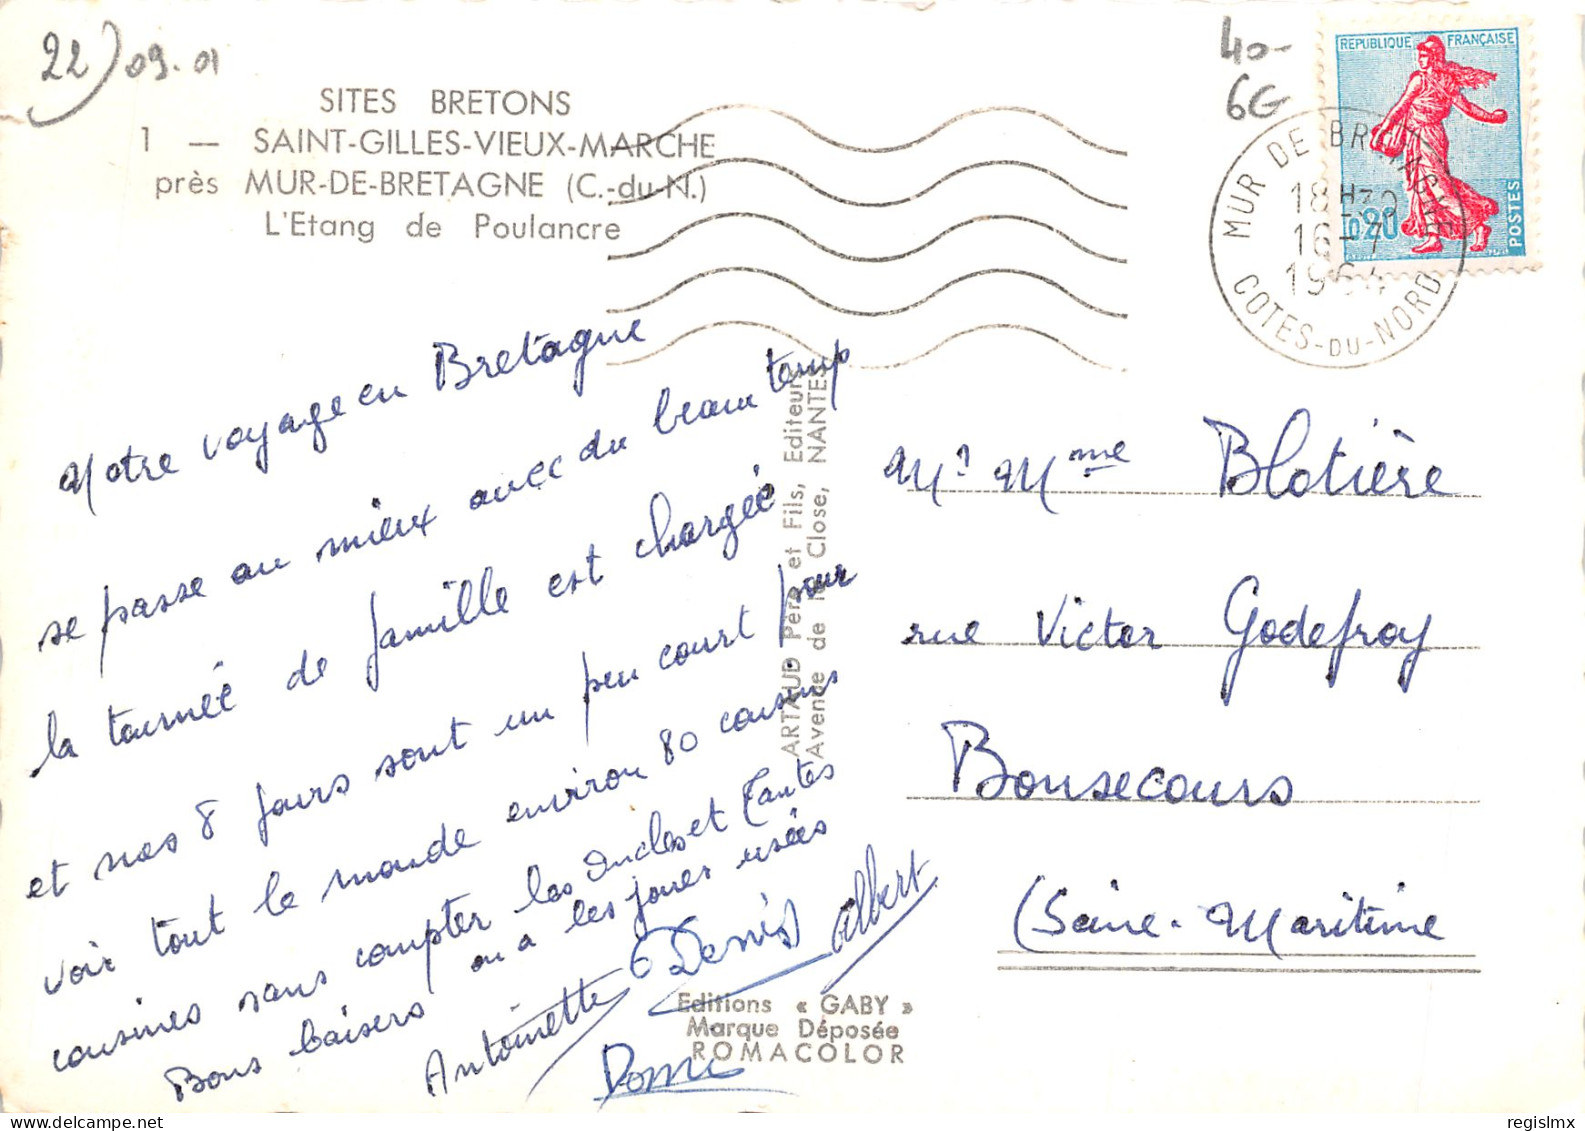 22) 09.01
SITES BRETONS
1 — SAINT-GILLES-VIEUX-MARCHE
près MUR-DE-BRETAGNE (C.-du-N.)
L'Etang de Poulancre
40-
6G
REPUBLIQUE FRANÇAISE
0,20
POSTES
MUR DE BRETAGNE
18H30
16-7
1964
COTES-DU-NORD
Notre voyage en Bretagne
se passe au mieux avec du beau temp
la tournée de famille est chargée
et nos 8 jours sont un peu court pour
voir tout le monde environ 80 cousins
cousines sans compter les oncles et Tantes
Bons baisers on a les joues usées
Antoinette Denis Albert
Domi
ARTAUD Père et Fils, Editeurs
Avenue de la Close, NANTES
Mr Mme Blotière
rue Victor Godefroy
Bonsecours
(Seine-Maritime
Editions « GABY »
Marque Déposée
ROMACOLOR
regislmx